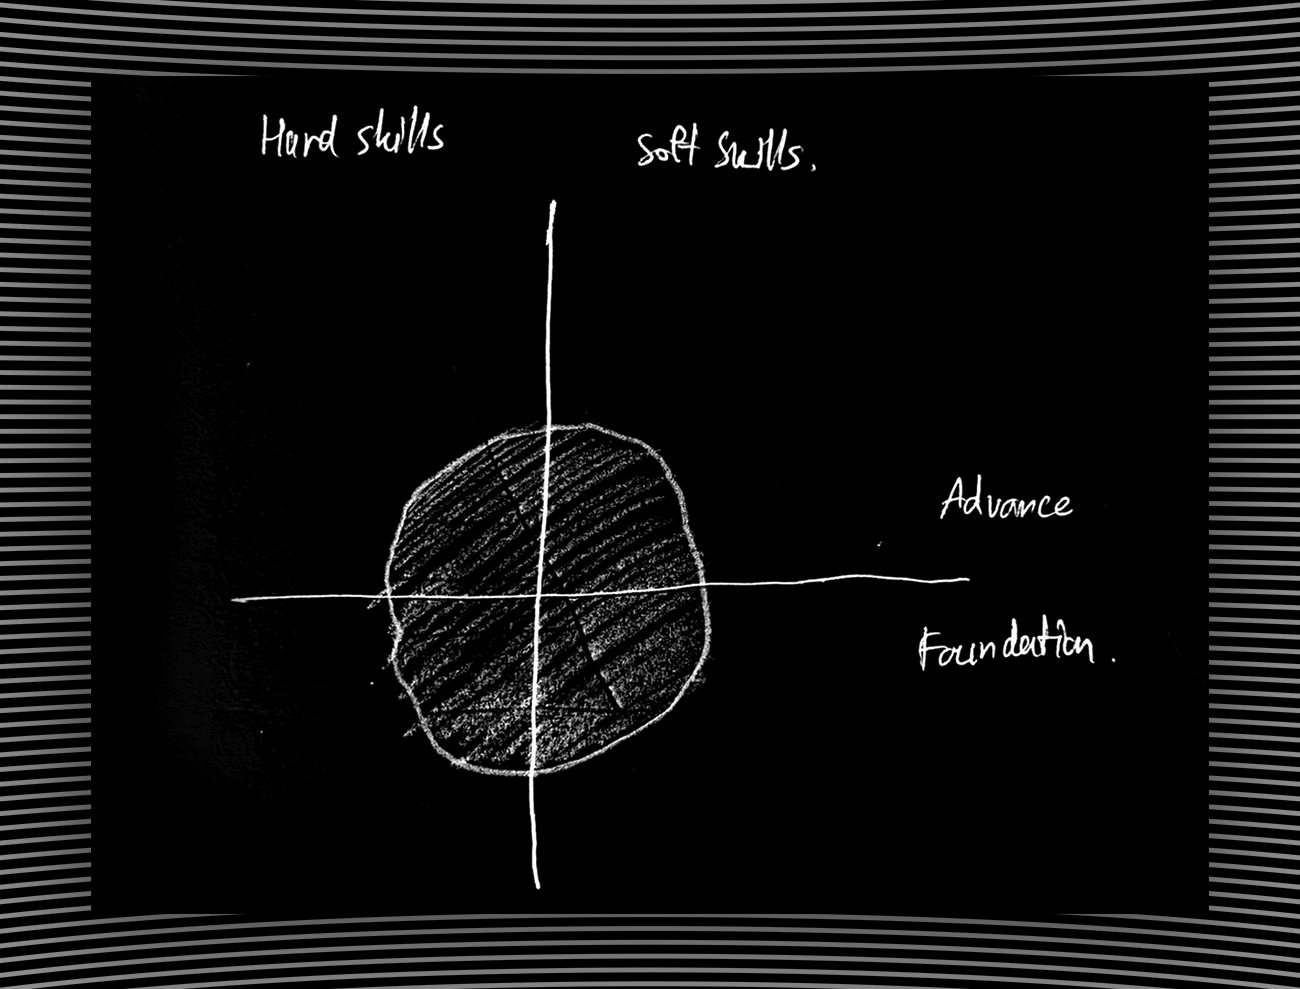 Hard skills
Soft skills.
Advance
Foundation.